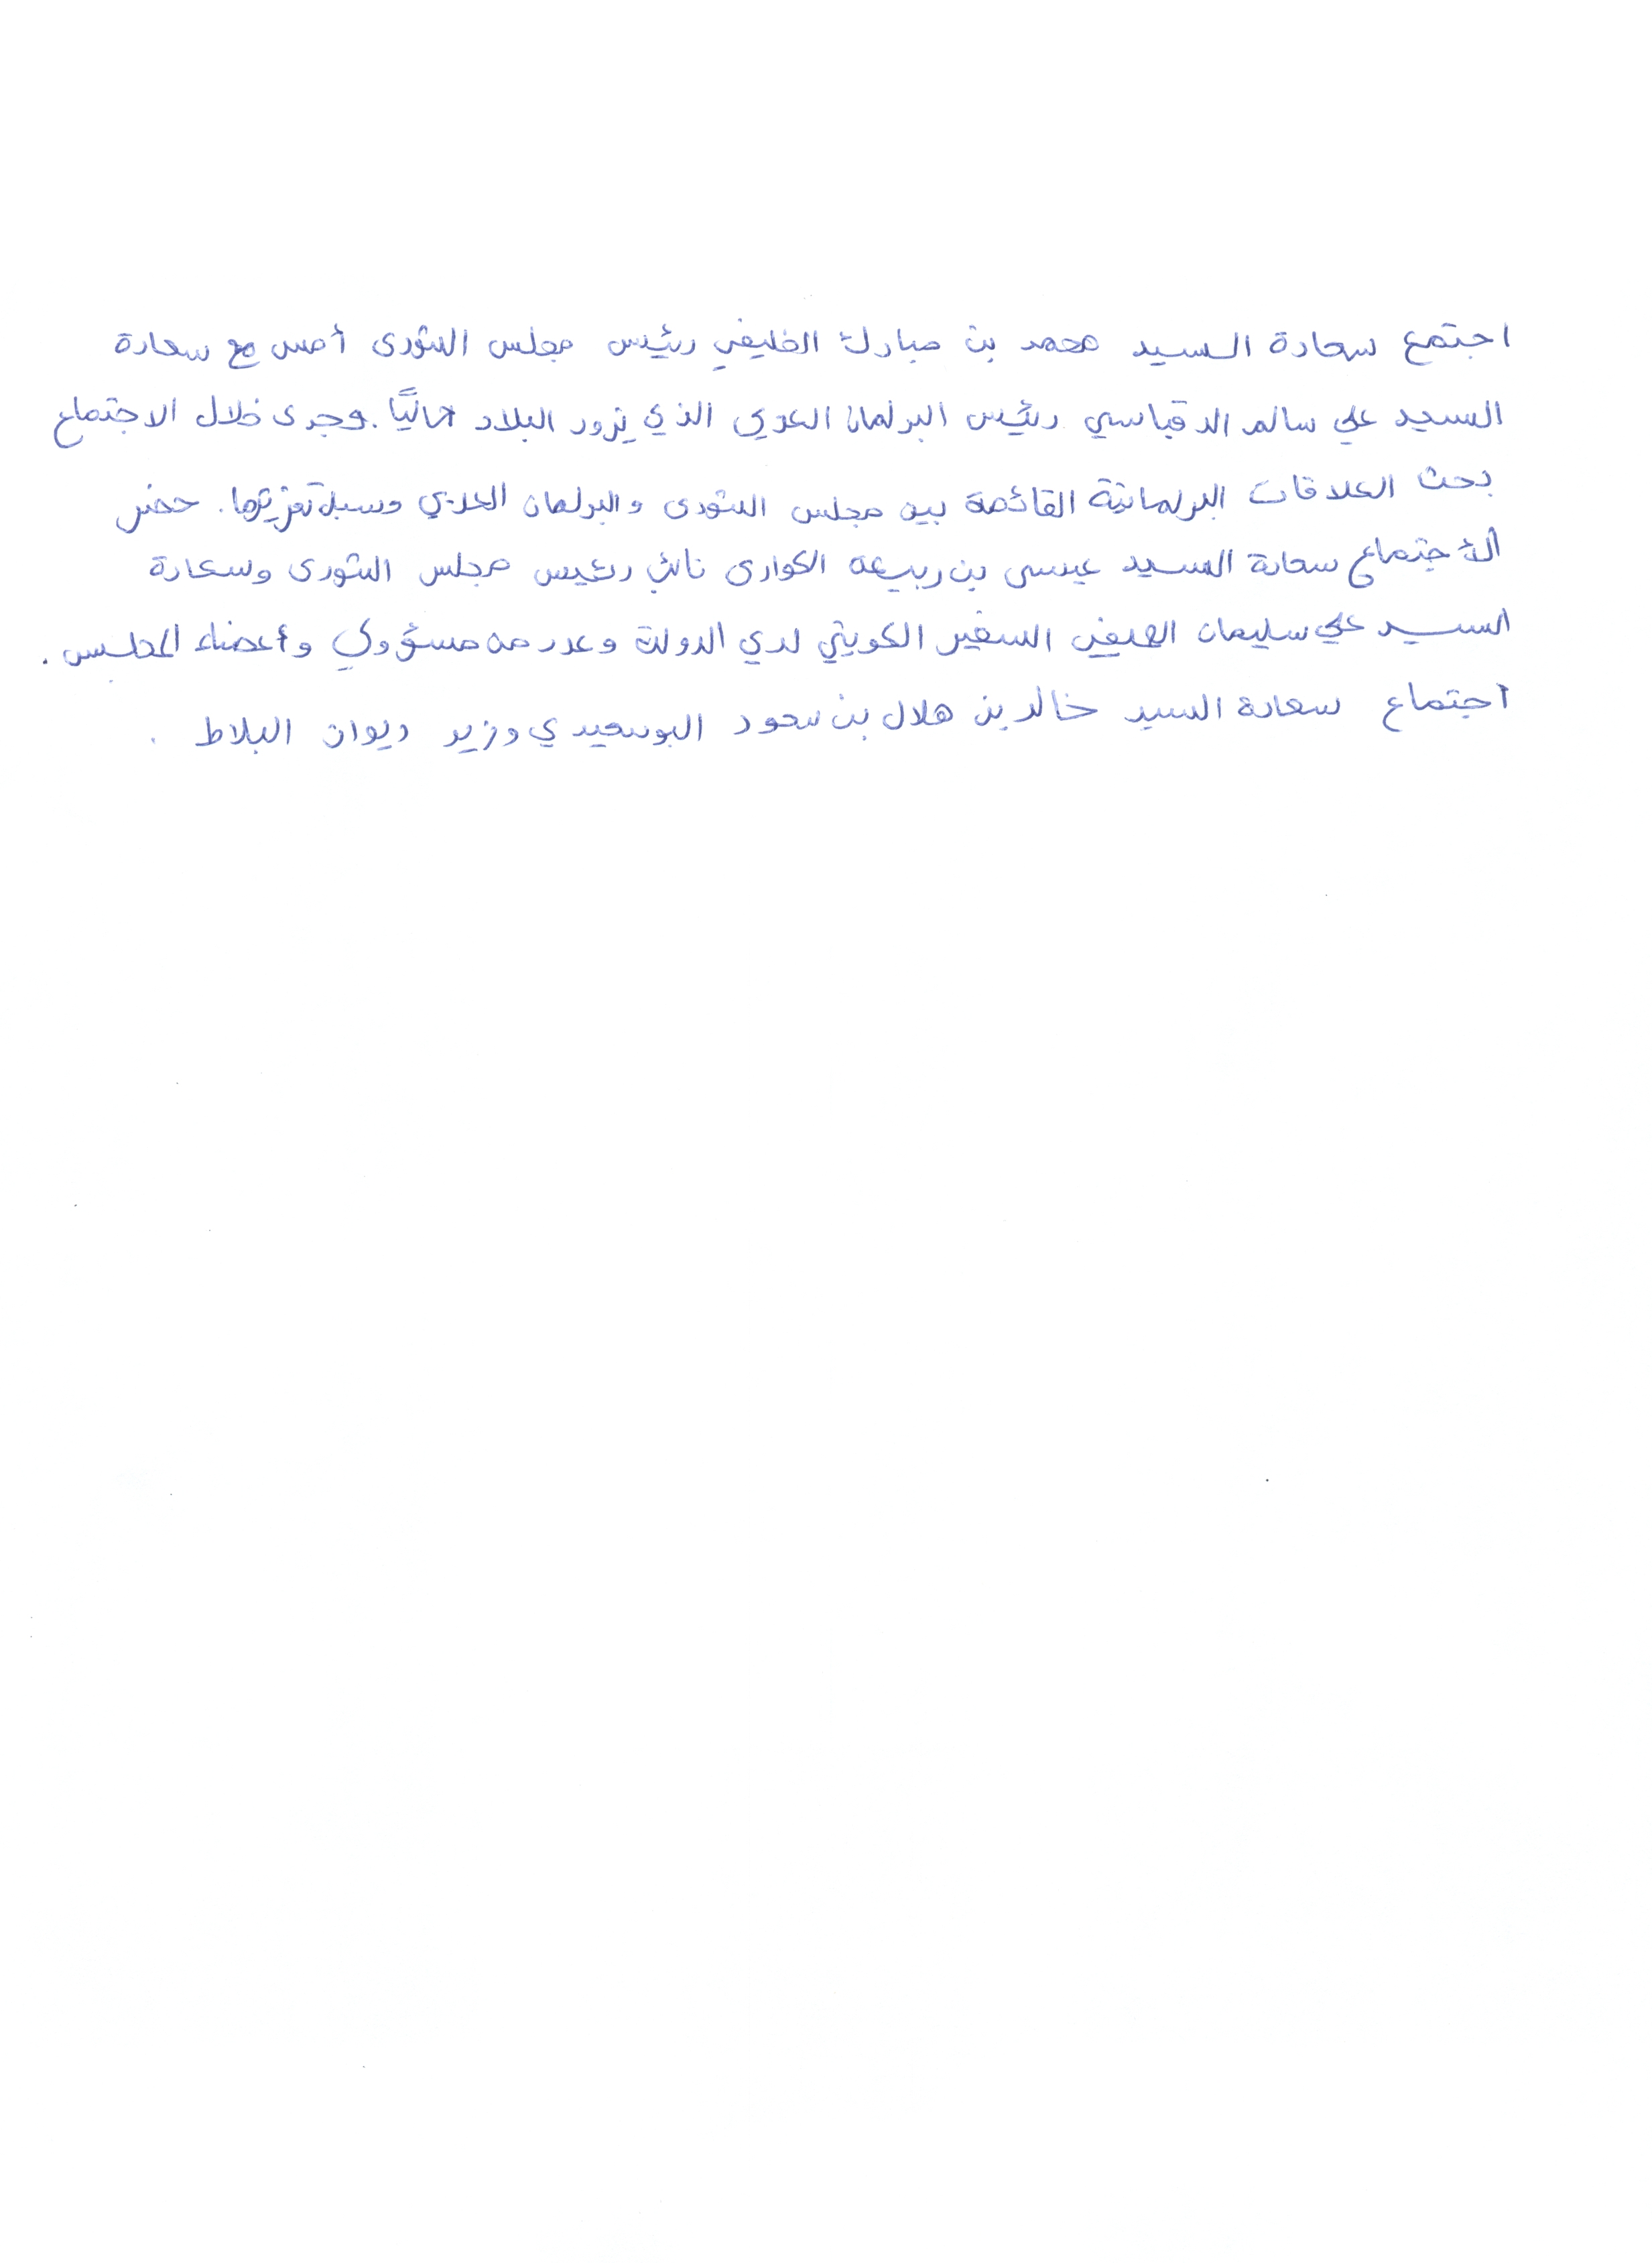 اجتمع سعادة السيد محمد بن مبارك الخليفي رئيس مجلس الشورى أمس مع سعادة
السيد علي سالم الدقباسي رئيس البرلمان العربي الذي يزور البلاد حاليًا. وجرى خلال الاجتماع
بحث العلاقات البرلمانية القائمة بين مجلس الشورى والبرلمان العربي وسبل تعزيزها. حضر
الاجتماع سعادة السيد عيسى بن ربيعه الكوارى نائب رئيس مجلس الشورى وسعادة
السيد علي سليمان السفير الكويتي لدي الدولة وعدد من مسؤولي وأعضاء المجلس.
اجتماع سعادة السيد خالد بن هلال بن سعود البوسعيدي وزير ديوان البلاط.